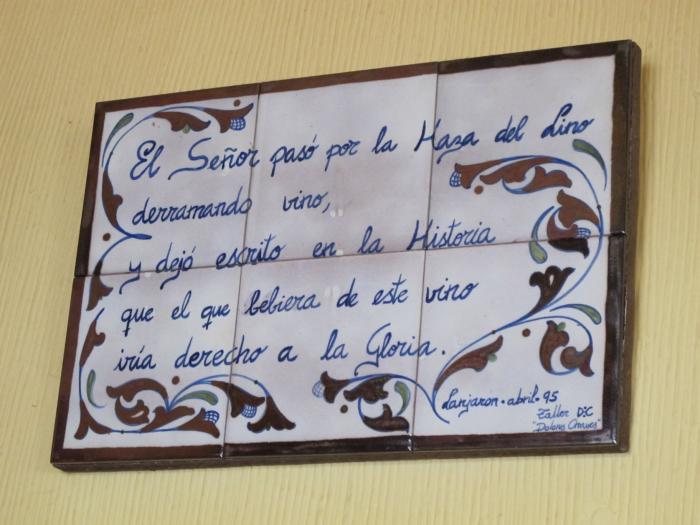 El Señor pasó por la Haza del Lino
derramando vino,
y dejó escrito en la Historia
que el que bebiera de este vino
iría derecho a la Gloria.
Lanjaron · abril · 95
Taller D:C
"Dolores Chaves"